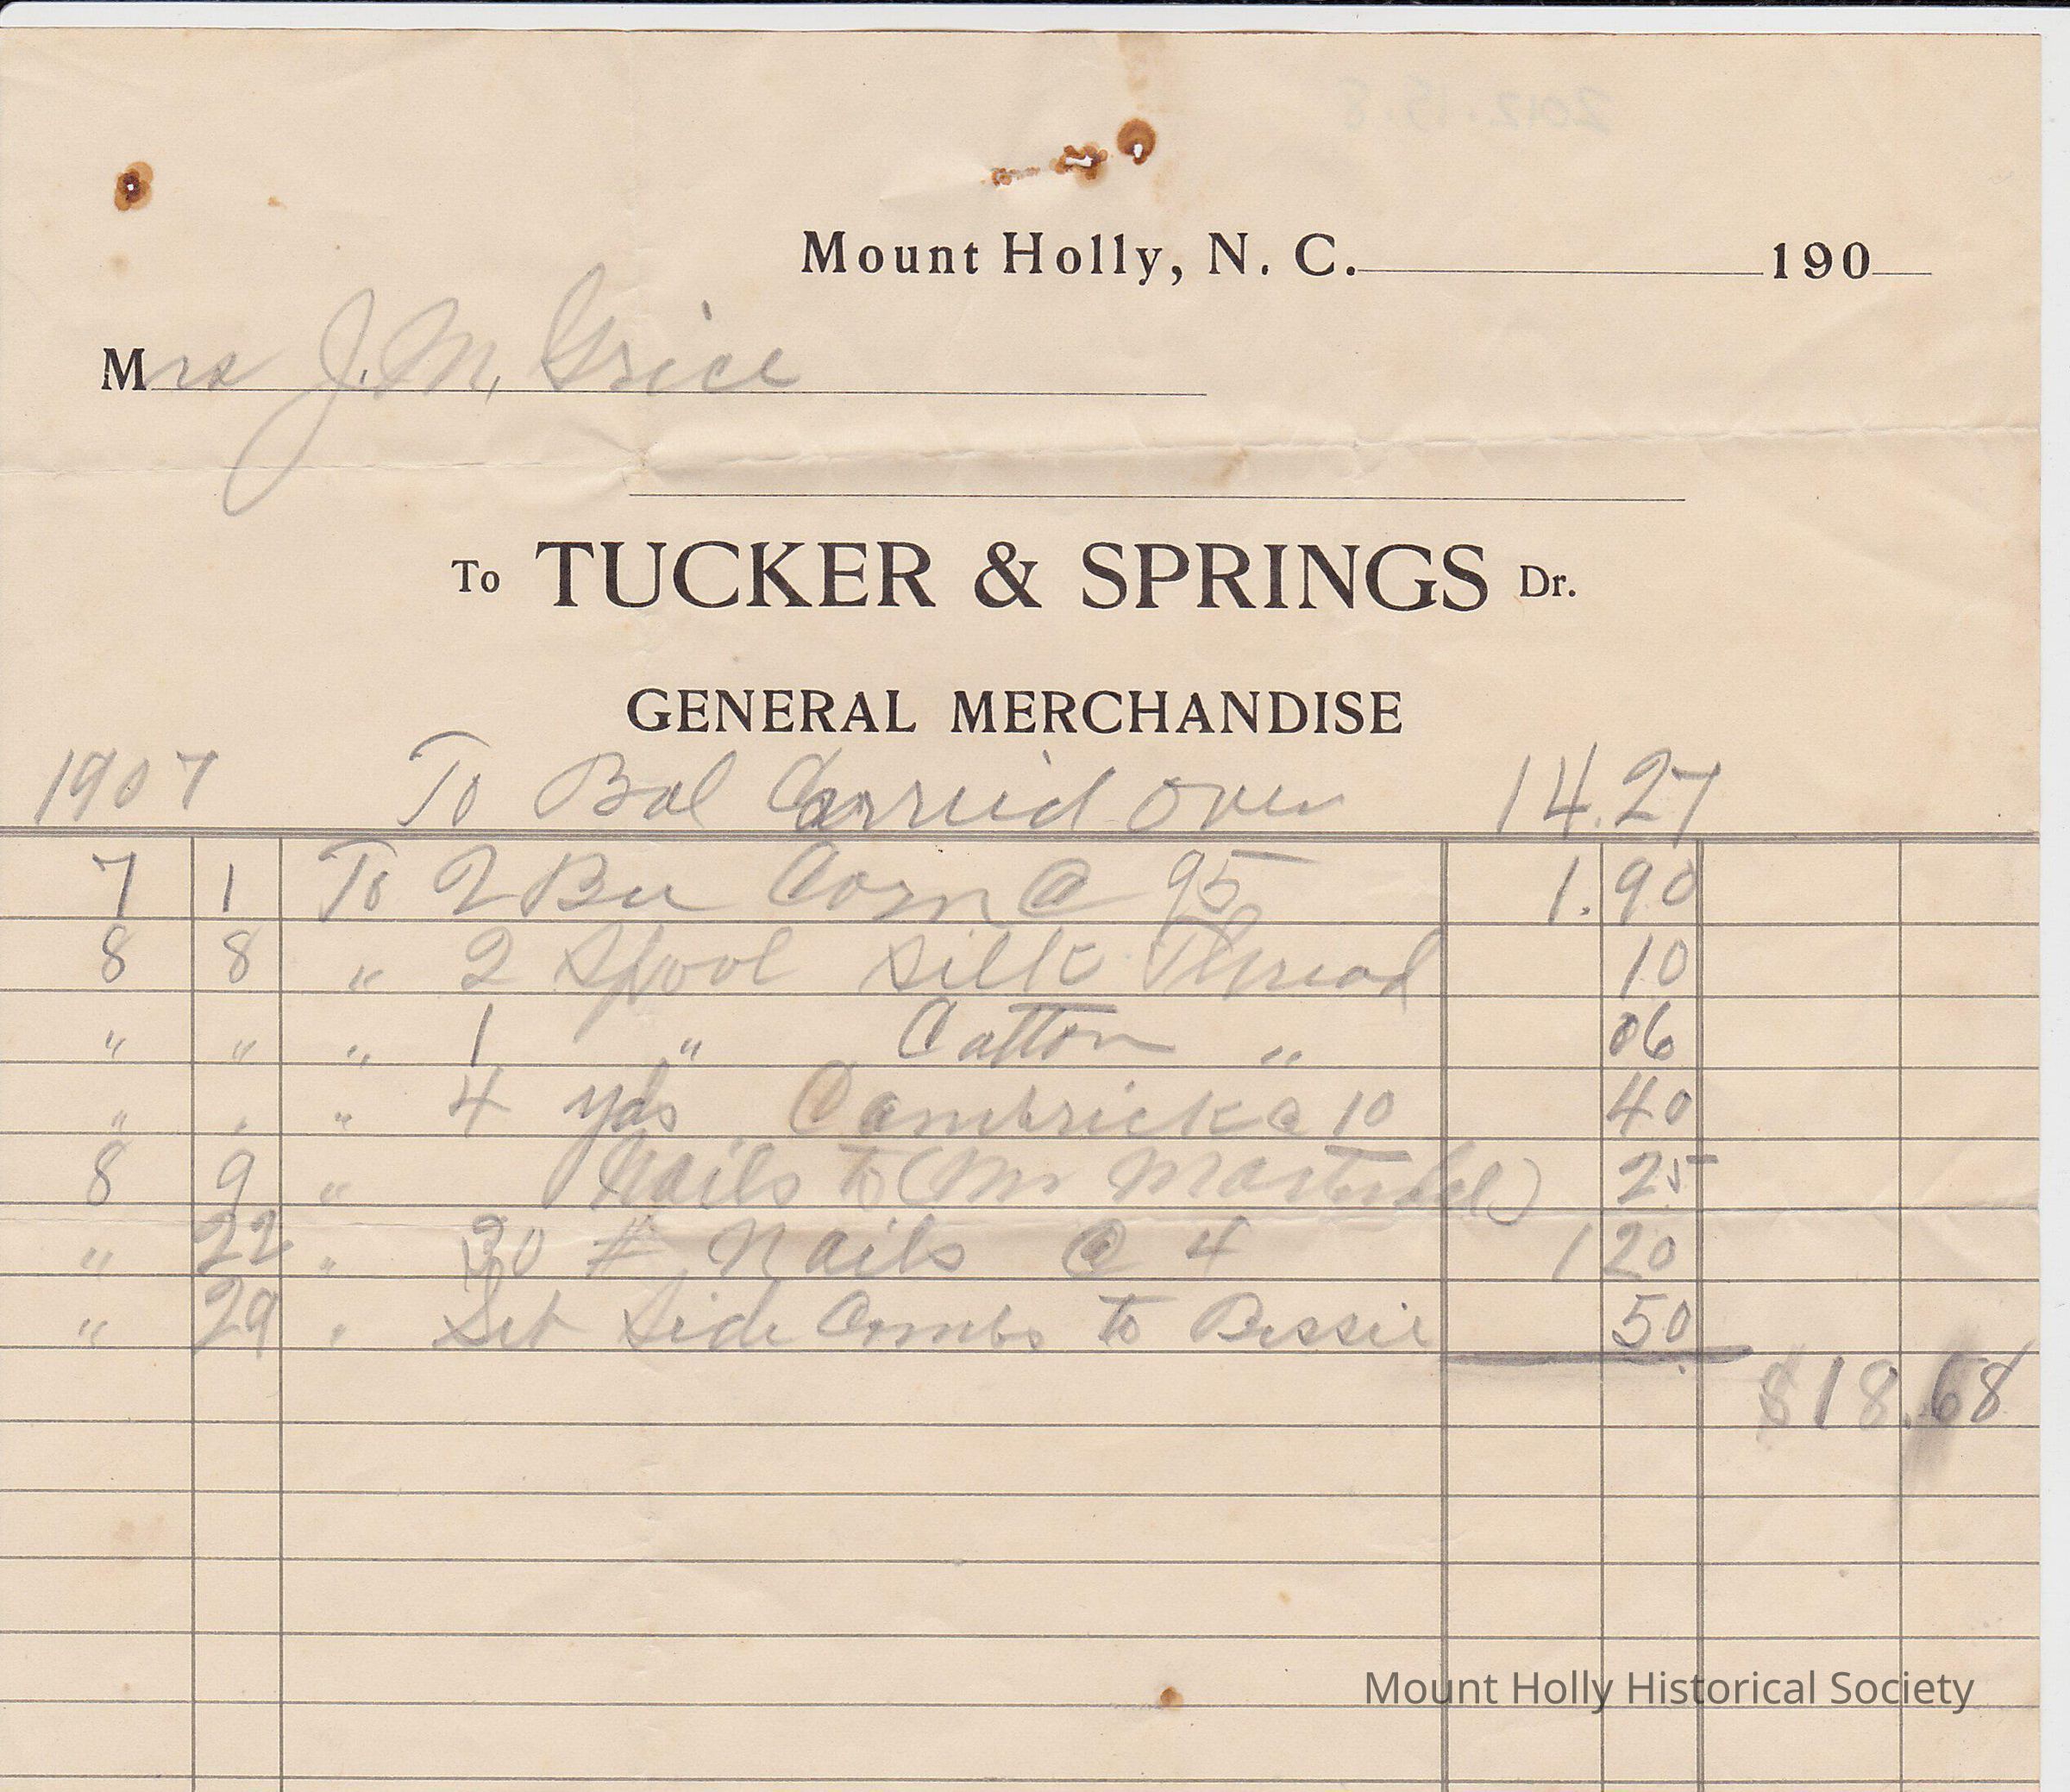 Mount Holly, N. C. 190
Mrs J. M. Grice
To TUCKER & SPRINGS Dr.
GENERAL MERCHANDISE
1907 To Bal Carried over 14.27
7 1 To 2 Bu Corn @ 95 1.90
8 8 " 2 Spool Silk Thread 10
" " " 1 " Cotton " 06
" " " 4 yds Cambrick @ 10 40
8 9 " Nails to (Mr 25
" 22 " 30 # Nails @ 4 1 20
" 29 " Set Side Combs to Bessie 50
$18.68
Mount Holly Historical Society